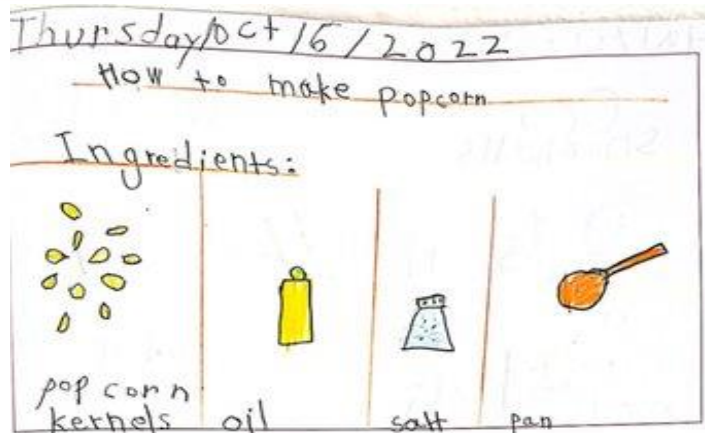 Thursday/Oct 16/2022
How to make popcorn
Ingredients:
pop corn
kernels
oil
salt
pan